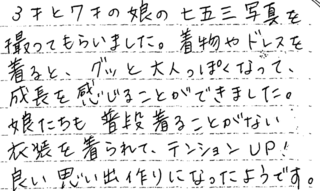 3才と7才の娘の七五三写真を
撮ってもらいました。着物やドレスを
着ると、グッと大人っぽくなって、
成長を感じることができました。
娘たちも普段着ることがない
衣装を着られて、テンションUP!
良い思い出作りになったようです。